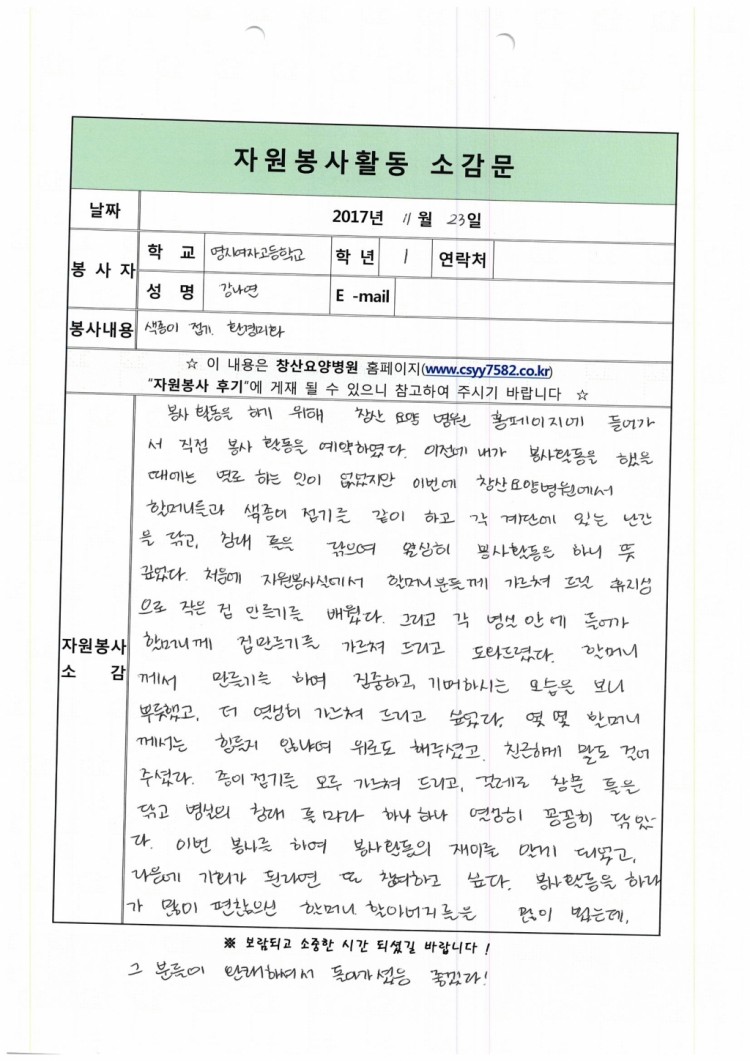 자원봉사활동 소감문
날짜 2017년 11월 23일
봉 사 자 학 교 명지여자고등학교 학 년 1 연락처
성 명 강나연 E -mail
봉사내용 색종이 접기. 환경미화
☆ 이 내용은 창산요양병원 홈페이지(www.csyy7582.co.kr)
"자원봉사 후기"에 게재 될 수 있으니 참고하여 주시기 바랍니다 ☆
자원봉사 소 감
봉사 활동을 하기 위해 창산 요양 병원 홈페이지에 들어가
서 직접 봉사 활동을 예약하였다. 이전에 내가 봉사활동을 했을
때에는 별로 하는 일이 없었지만 이번에 창산요양병원에서
할머니들과 색종이 접기를 같이 하고 각 계단에 있는 난간
을 닦고, 침대 틀을 닦으며 열심히 봉사활동을 하니 뜻
깊었다. 처음에 자원봉사실에서 할머니분들께 가르쳐 드릴 휴지심
으로 작은 컵 만들기를 배웠다. 그리고 각 병실 안에 들어가
할머니께 컵만들기를 가르쳐 드리고 도와드렸다. 할머니
께서 만들기를 하며 집중하고, 기뻐하시는 모습을 보니
뿌듯했고, 더 열심히 가르쳐 드리고 싶었다. 몇 몇 할머니
께서는 힘들지 않냐며 위로도 해주셨고, 친근하게 말도 걸어
주셨다. 종이접기를 모두 가르쳐 드리고, 걸레로 창문 틀을
닦고 병실의 침대 틀마다 하나 하나 열심히 꼼꼼히 닦았
다. 이번 봉사를 하며 봉사활동의 재미를 알게 되었고,
다음에 기회가 된다면 또 참여하고 싶다. 봉사활동을 하다
가 많이 편찮으신 할머니, 할아버지들을 많이 뵀는데,
※ 보람되고 소중한 시간 되셨길 바랍니다 !
그 분들이 완쾌하셔서 돌아가셨음 좋겠다!